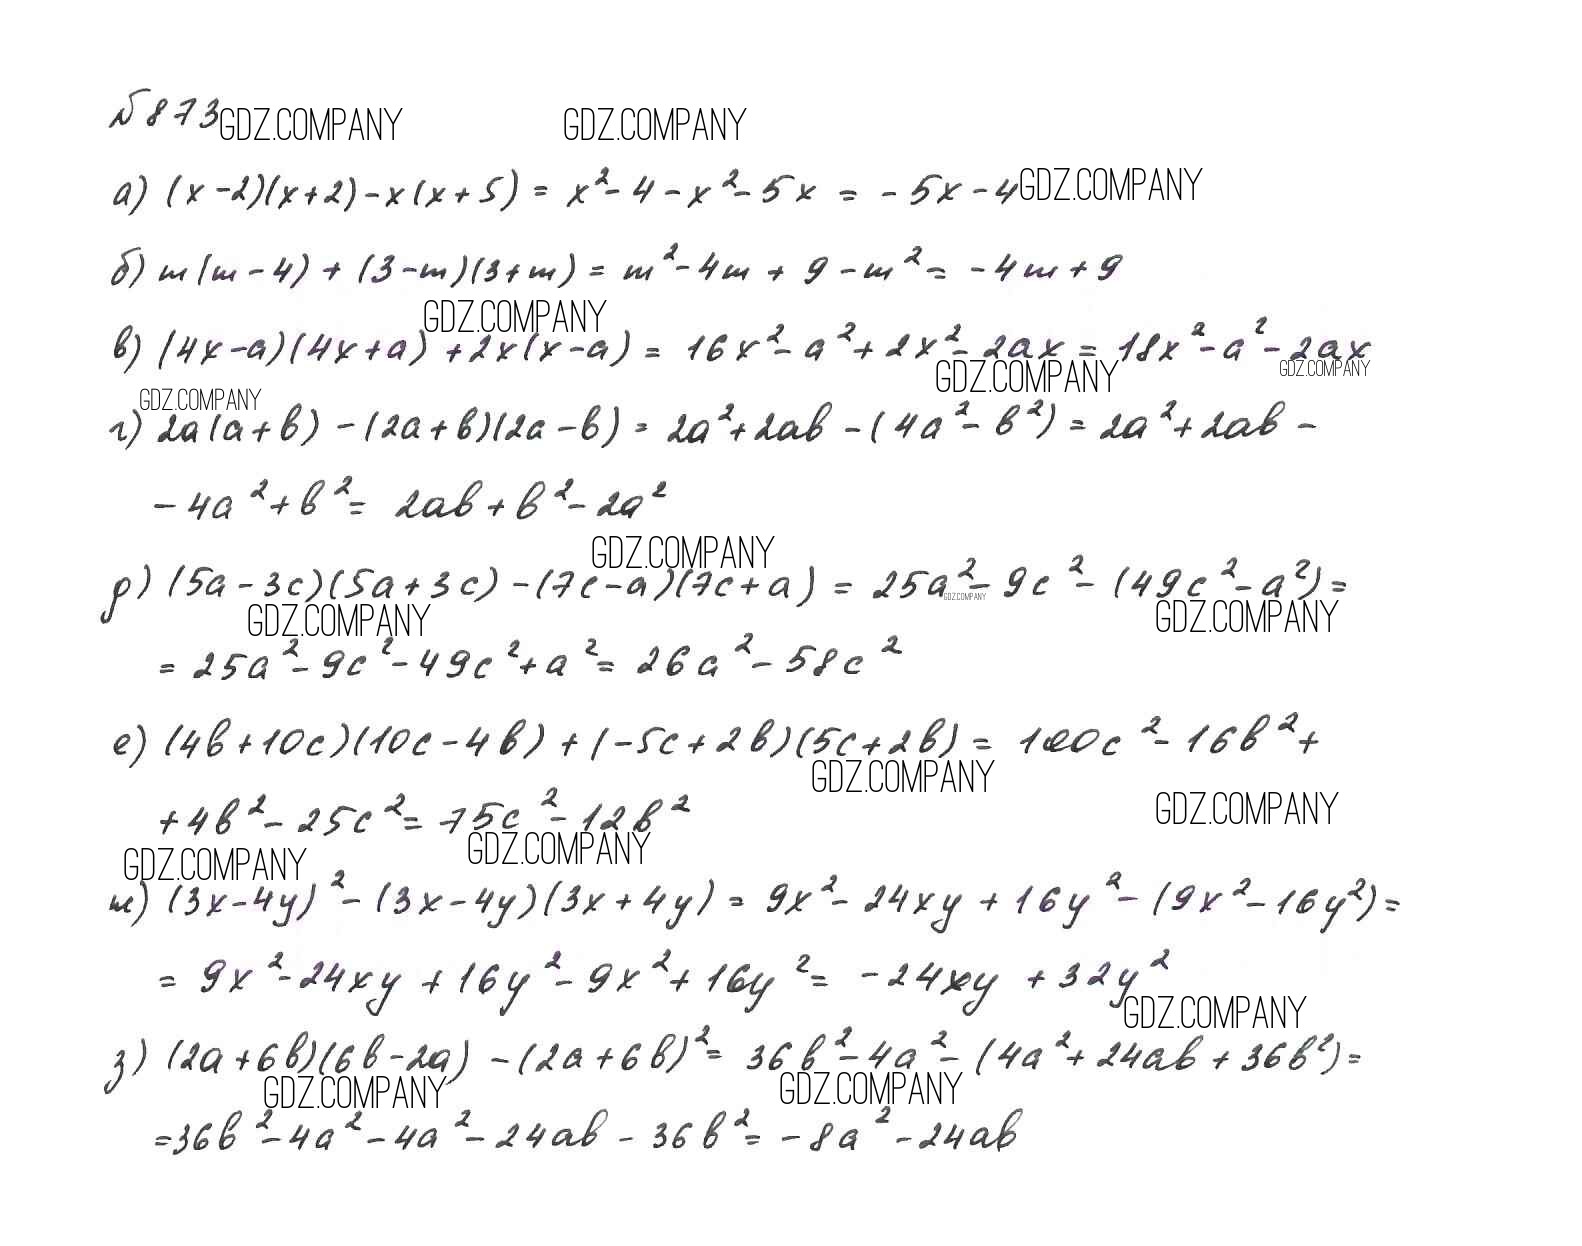 №873 GDZ.COMPANY GDZ.COMPANY
а) (x-2)(x+2)-x(x+5) = x²-4-x²-5x = -5x-4 GDZ.COMPANY
б) m(m-4)+(3-m)(3+m) = m²-4m+9-m² = -4m+9
GDZ.COMPANY
в) (4x-a)(4x+a)+2x(x-a) = 16x²-a²+2x²-2ax = 18x²-a²-2ax
GDZ.COMPANY GDZ.COMPANY
GDZ.COMPANY
г) 2a(a+b)-(2a+b)(2a-b) = 2a²+2ab-(4a²-b²) = 2a²+2ab-
-4a²+b² = 2ab+b²-2a²
GDZ.COMPANY
д) (5a-3c)(5a+3c)-(7c-a)(7c+a) = 25a²-9c²-(49c²-a²)=
GDZ.COMPANY
GDZ.COMPANY GDZ.COMPANY
= 25a²-9c²-49c²+a² = 26a²-58c²
е) (4b+10c)(10c-4b)+(-5c+2b)(5c+2b) = 100c²-16b²+
GDZ.COMPANY
+4b²-25c² = 75c²-12b² GDZ.COMPANY
GDZ.COMPANY GDZ.COMPANY
ж) (3x-4y)²-(3x-4y)(3x+4y) = 9x²-24xy+16y²-(9x²-16y²)=
= 9x²-24xy+16y²-9x²+16y² = -24xy+32y²
GDZ.COMPANY
з) (2a+6b)(6b-2a)-(2a+6b)² = 36b²-4a²-(4a²+24ab+36b²)=
GDZ.COMPANY GDZ.COMPANY
=36b²-4a²-4a²-24ab-36b² = -8a²-24ab